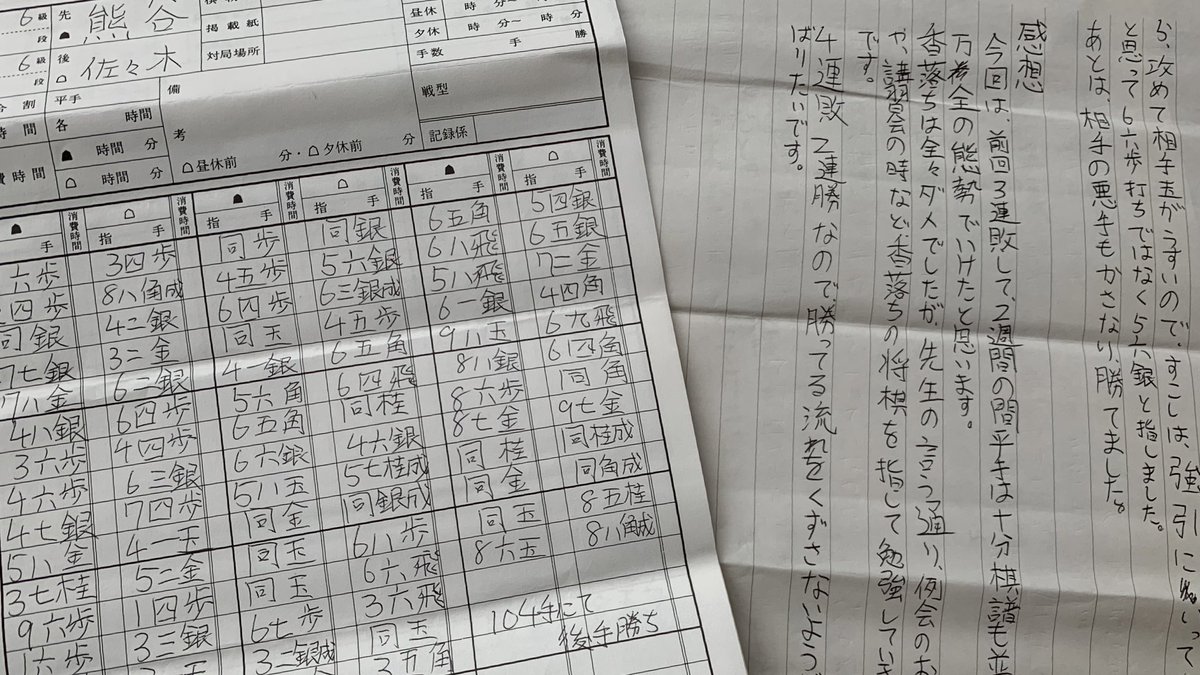 6級
段
先
熊谷
6級
段
後
佐々木
掲載紙
対局場所
昼休 時 分~ 時
夕休 時 分~ 時 分
手数 手 勝
戦型
記録係
平手
各 時間
時間 分
時間 分
備
考
昼休前 分・夕休前 分
手 消費時間 指 手 消費時間 指 手 消費時間 指 手 消費時間 指 手 消費時間 指 手 消費時間
六歩
四歩
同銀
7七銀
7八金
4八銀
3六歩
4六歩
4七銀
5八金
3七桂
9六歩
1六歩
3四歩
8八角成
4二銀
3二金
6二銀
6四歩
4四歩
6三銀
7四歩
4一玉
5二金
1四歩
3三銀
同歩
4五歩
6四歩
同玉
4一銀
5六角
6五角
6六銀
5八玉
同金
同玉
同玉
6七歩
3二銀成
同銀
5六銀
6三銀成
4五歩
6五角
6四飛
同桂
4六銀
5七桂成
同銀成
6八歩
6六飛
3六飛
同玉
3五角
6五角
6八飛
5八飛
6一銀
9八玉
8八銀
8六歩
8七金
同桂
同金
同玉
8六玉
5四銀
6五銀
7二金
4四角
6九飛
6四角
同角
9七金
同桂成
同角成
8五桂
8八角成
104手にて
後手勝ち
ら、攻めて相手玉がうすいので、すこしは、強引に
と思って6六歩打ちではなく5六銀と指しました。
あとは、相手の悪手もかさなり、勝てました。
感想
今回は、前回3連敗して、2週間の間平手は十分棋譜も並
万全の態勢でいけたと思います。
香落ちは全々ダメでしたが、先生の言う通り、例会のお
や、講習会の時など香落ちの将棋を指して勉強していき
です。
4連敗2連勝なので勝ってる流れをくずさないようが
ばりたいです。